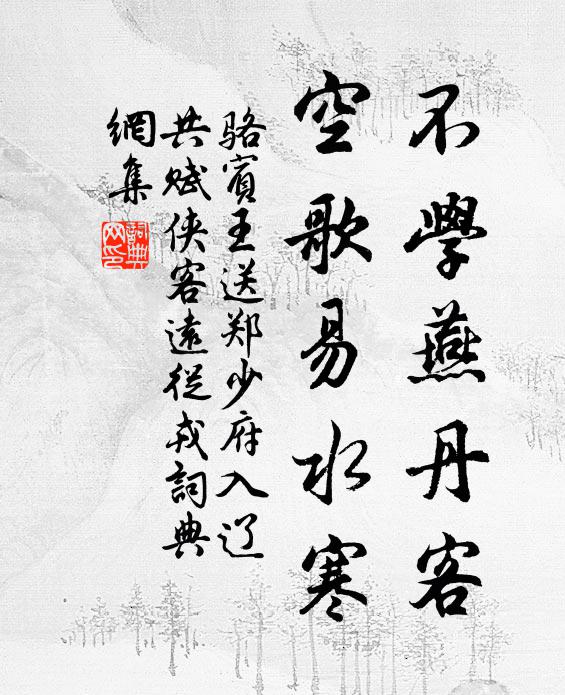 不學燕丹客
空歌易水寒
骆賓王送郑少府入辽
共赋侠客遠從戎詞典
網集
詞典网印